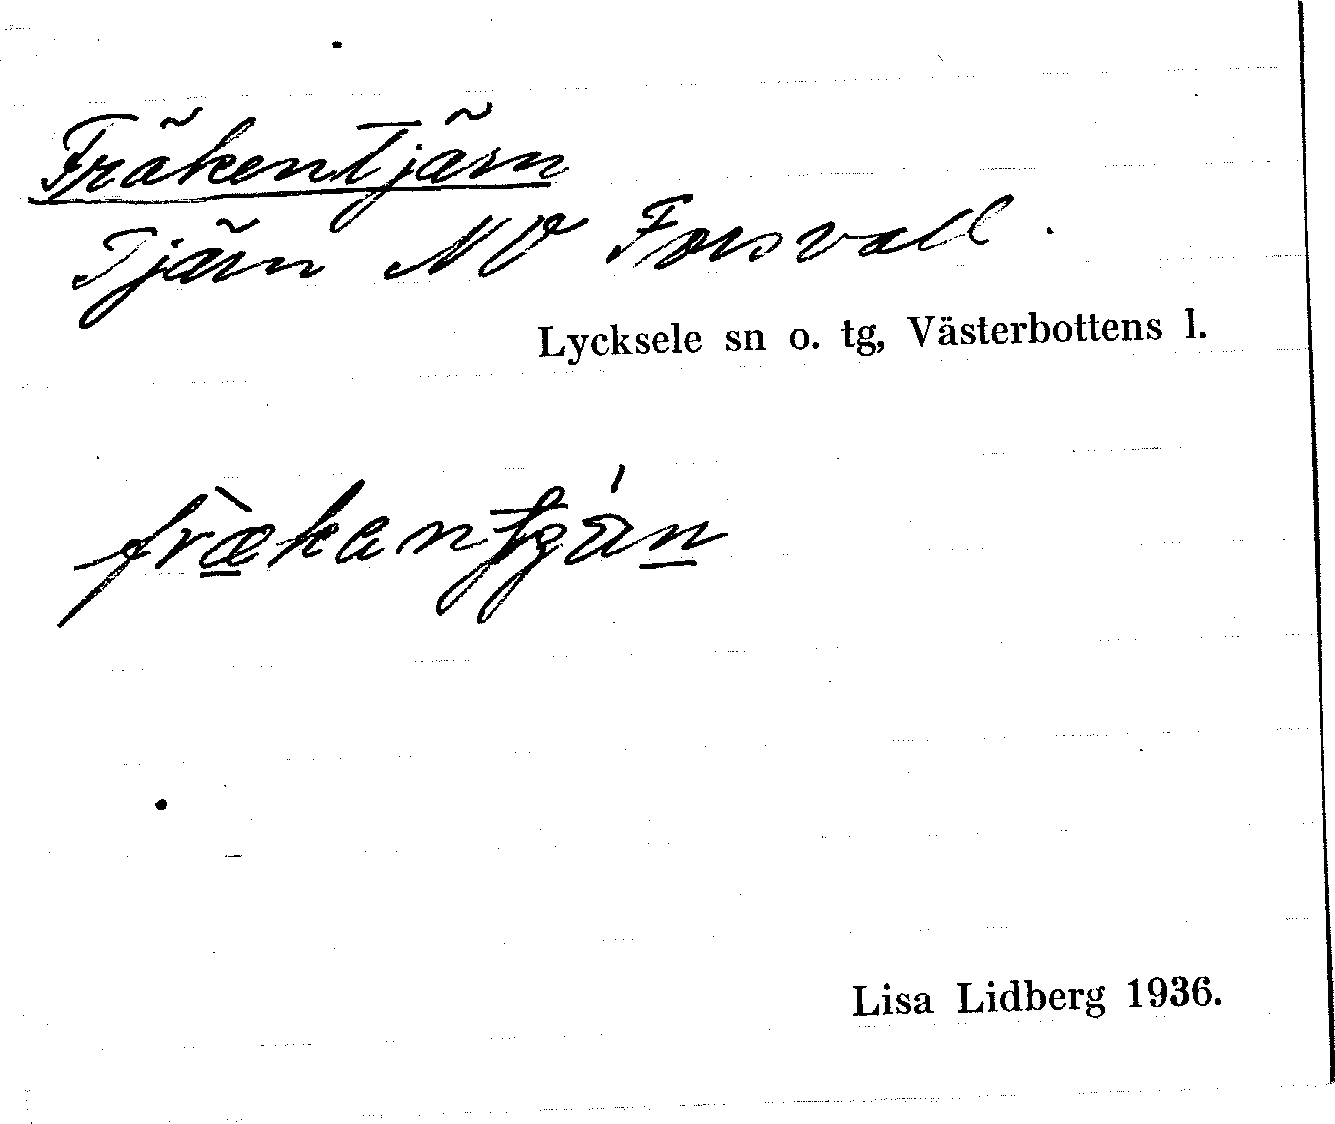 Fräkentjärn
Tjärn NV Forsvall.
Lycksele sn o. tg, Västerbottens l.
Lisa Lidberg 1936.